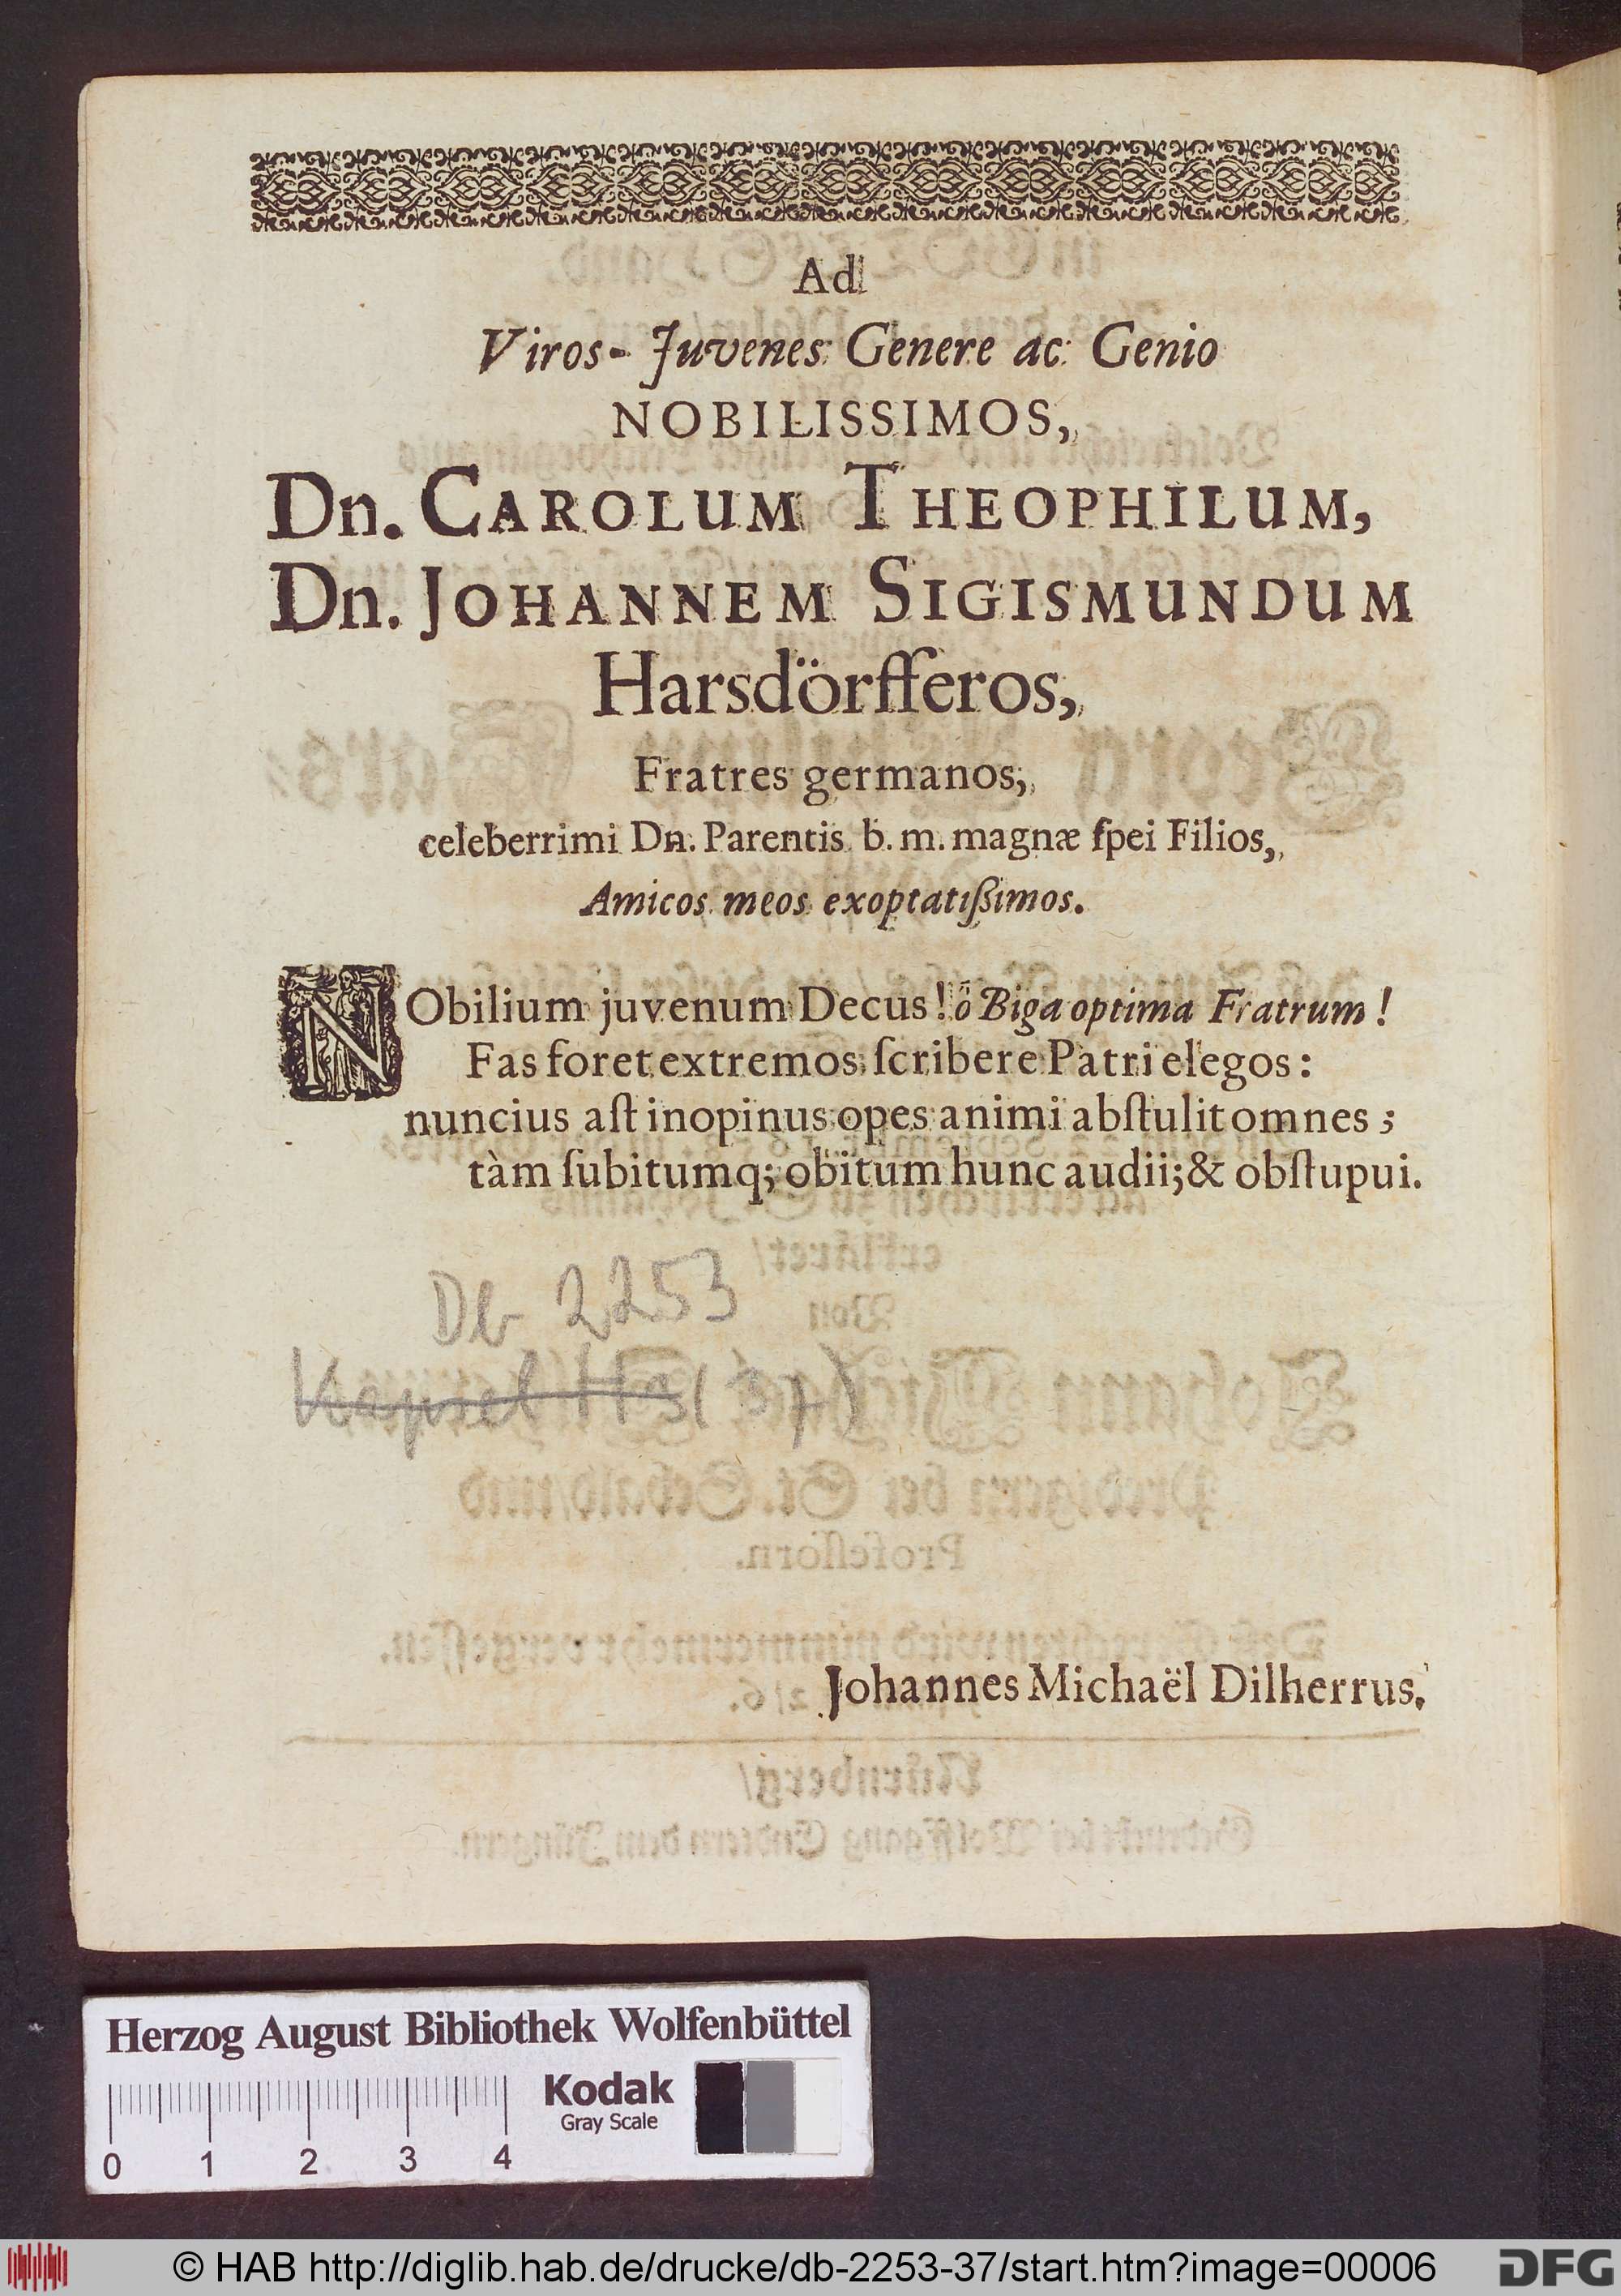 Ad
Viros- Juvenes Genere ac Genio
NOBILISSIMOS,
Dn. CAROLUM THEOPHILUM,
Dn. JOHANNEM SIGISMUNDUM
Harsdörfferos,
Fratres germanos,
celeberrimi Dn. Parentis b. m. magnæ ſpei Filios,
Amicos meos exoptatißimos.
NObilium juvenum Decus! ô Biga optima Fratrum!
Fas foret extremos ſcribere Patri elegos:
nuncius aſt inopinus opes animi abſtulit omnes;
tàm ſubitumq; obitum hunc audii; & obſtupui.
Db 2253
Kapsel Hs (37)
Johannes Michaël Dilherrus.
Herzog August Bibliothek Wolfenbüttel
Kodak
Gray Scale
0 1 2 3 4
© HAB http://diglib.hab.de/drucke/db-2253-37/start.htm?image=00006
DFG